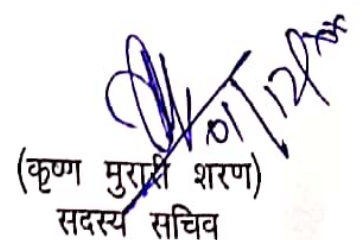 01/12/
(कृष्ण मुरारी शरण)
सदस्य सचिव